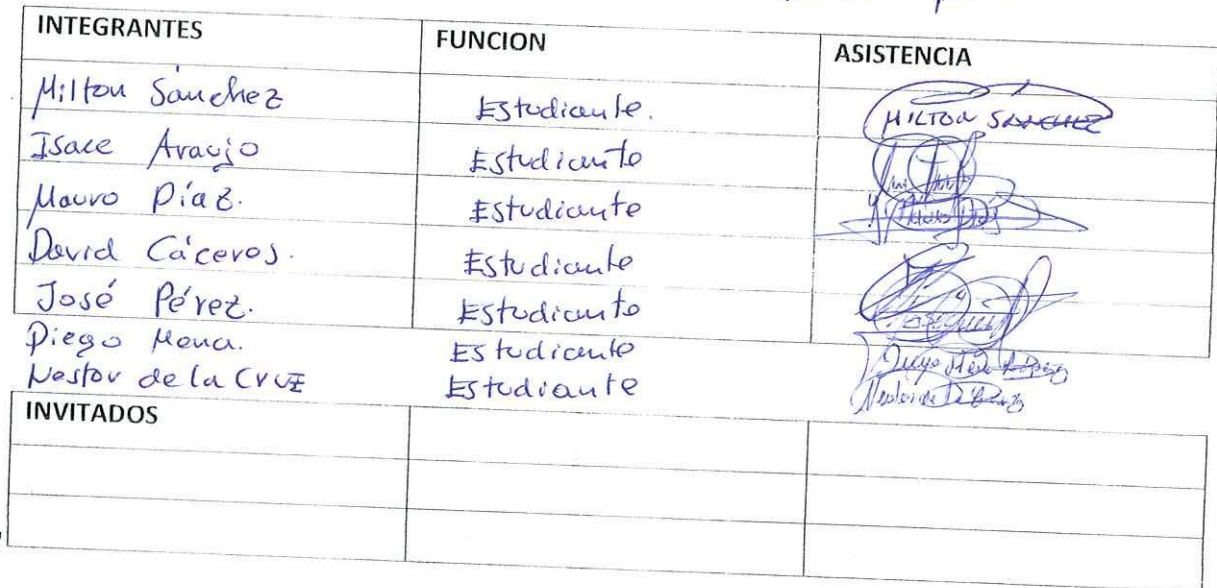 INTEGRANTES FUNCION ASISTENCIA
Milton Sánchez Estudiante. MILTON SÁNCHEZ
Isace Araujo Estudiante
Mauro Díaz. Estudiante
David Cáceros. Estudiante
José Pérez. Estudiante
Diego Mena. Estudiante Diego Mena López
Nestor de la Cruz Estudiante
INVITADOS